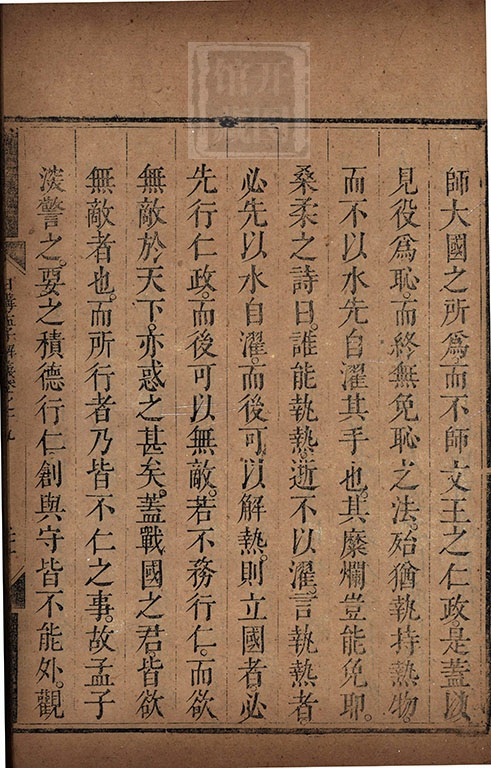 師大國之所爲而不師文王之仁政。是蓋以
見役爲恥。而終無免恥之法。殆猶執持熱物。
而不以水先自濯其手也。其糜爛豈能免耶。
桑柔之詩曰。誰能執熱。逝不以濯。言執熱者。
必先以水自濯。而後可以解熱。則立國者。必
先行仁政。而後可以無敵。若不務行仁。而欲
無敵於天下。亦惑之甚矣。蓋戰國之君。皆欲
無敵者也。而所行者乃皆不仁之事。故孟子
淡警之。要之積德行仁。創與守皆不能外。觀
日講孟子解義卷之十九